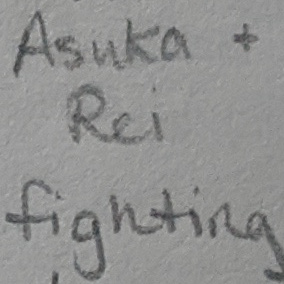 Asuka +
Rei
fighting